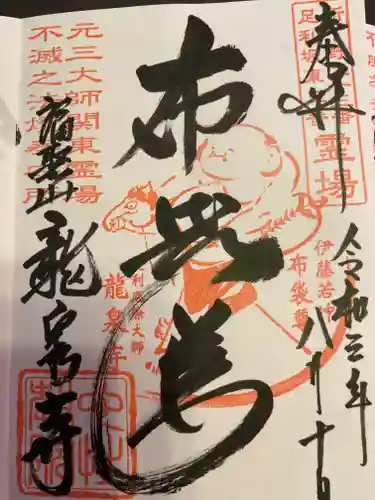 奉拝
足利坂東
霊場
令和三年
八月十日
伊藤若冲
布袋尊
布袋尊
龍泉寺
元三大師関東霊場
不滅之法燈
福聚山
龍泉寺